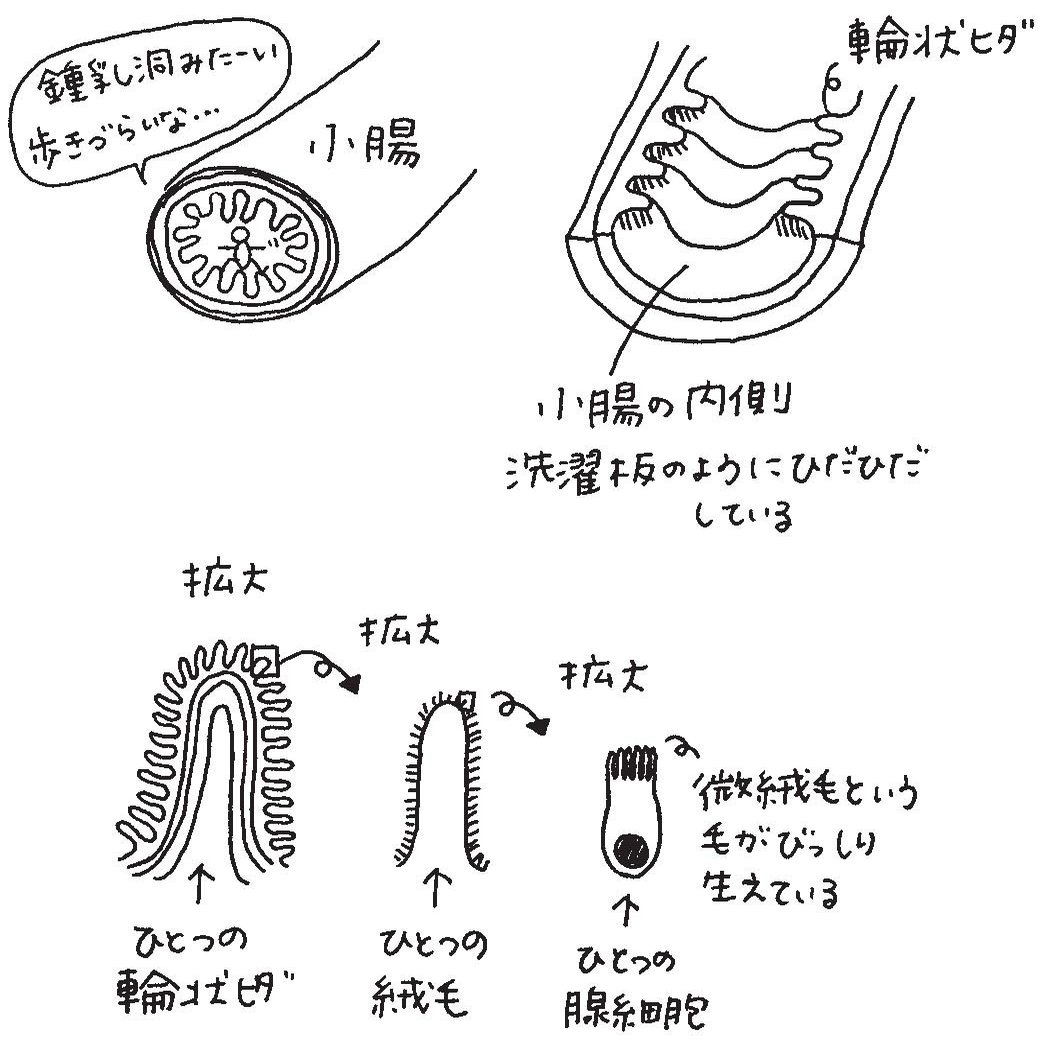 鍾乳し洞みたーい
歩きづらいな…
小腸
輪状ヒダ
小腸の内側
洗濯板のようにひだひだ
している
拡大
拡大
拡大
微絨毛という
毛がびっしり
生えている
ひとつの
輪状ヒダ
ひとつの
絨毛
ひとつの
腺細胞